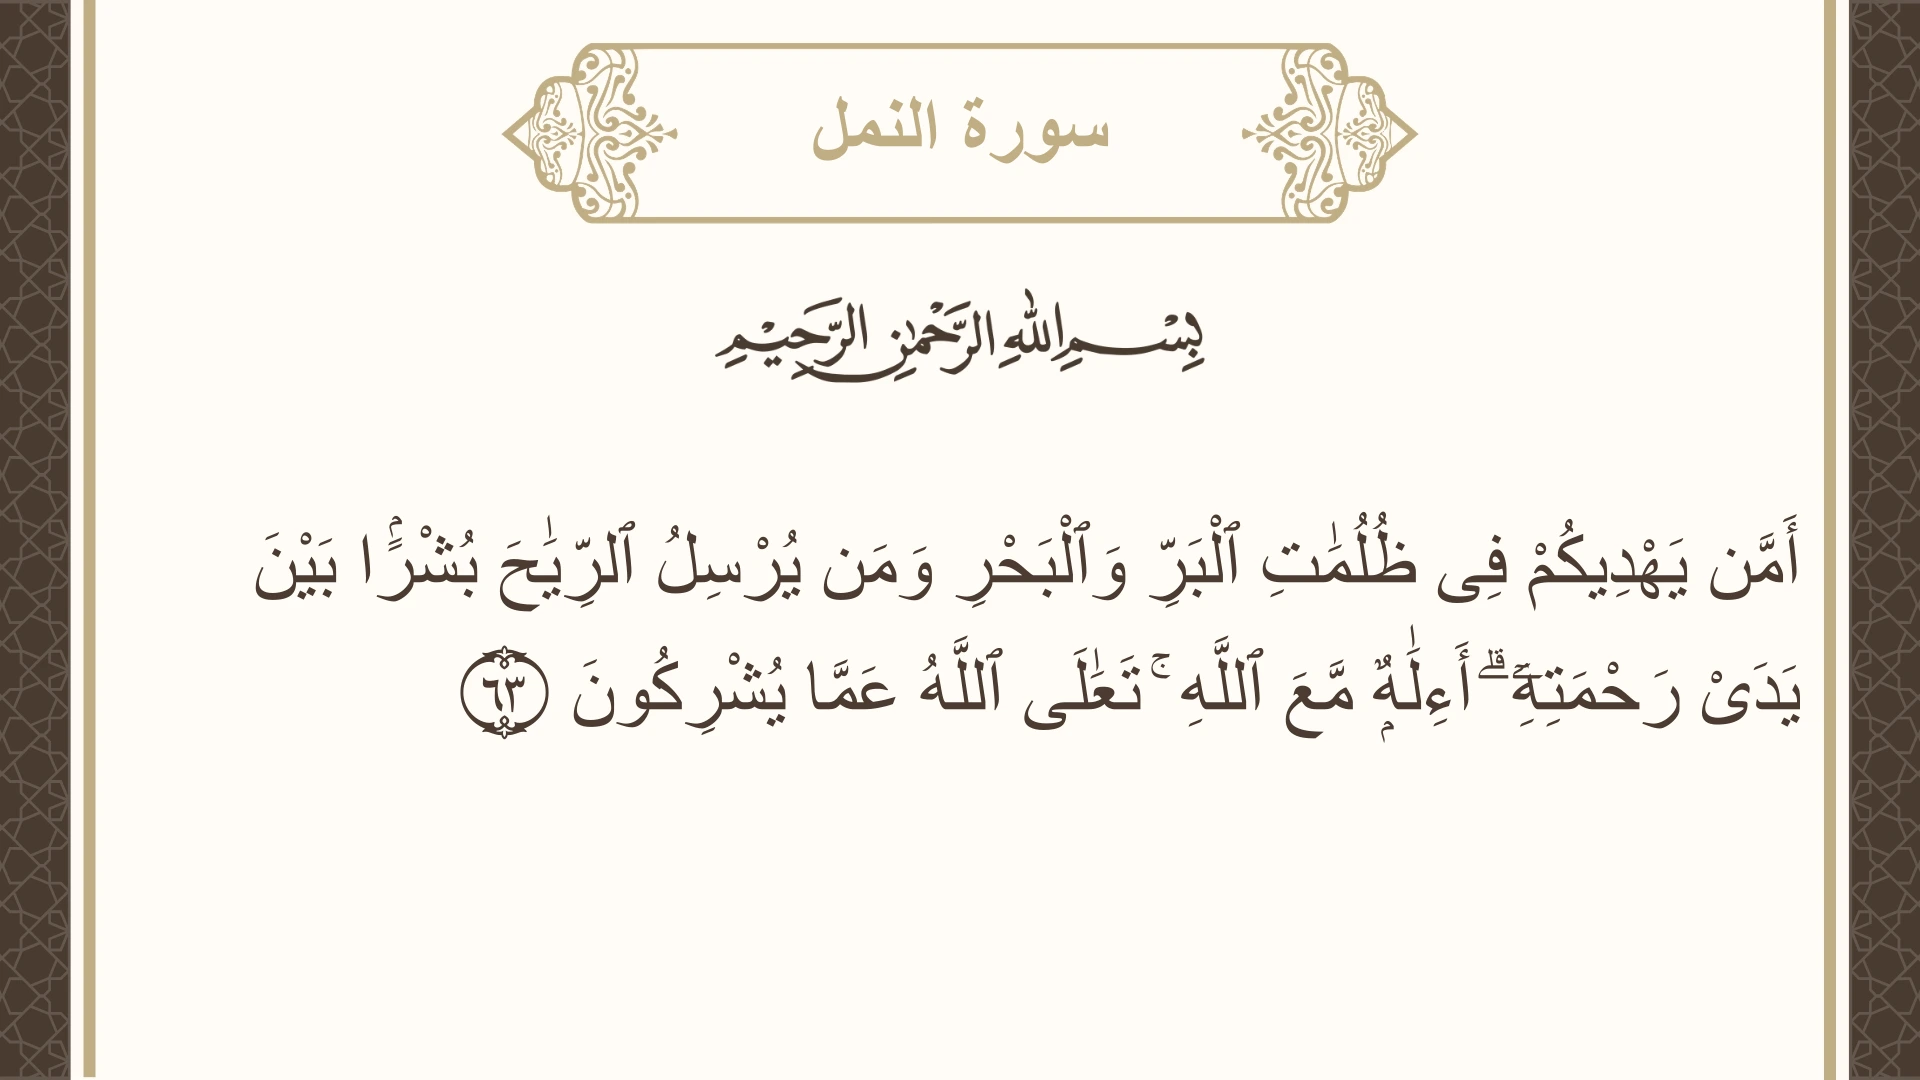 سورة النمل
بِسْمِ اللهِ الرَّحْمٰنِ الرَّحِيْمِ
أَمَّن يَهْدِيكُمْ فِى ظُلُمَٰتِ ٱلْبَرِّ وَٱلْبَحْرِ وَمَن يُرْسِلُ ٱلرِّيَٰحَ بُشْرًۢا بَيْنَ
يَدَىْ رَحْمَتِهِۦٓ ۗ أَءِلَٰهٌۭ مَّعَ ٱللَّهِ ۚ تَعَٰلَى ٱللَّهُ عَمَّا يُشْرِكُونَ ٦٣